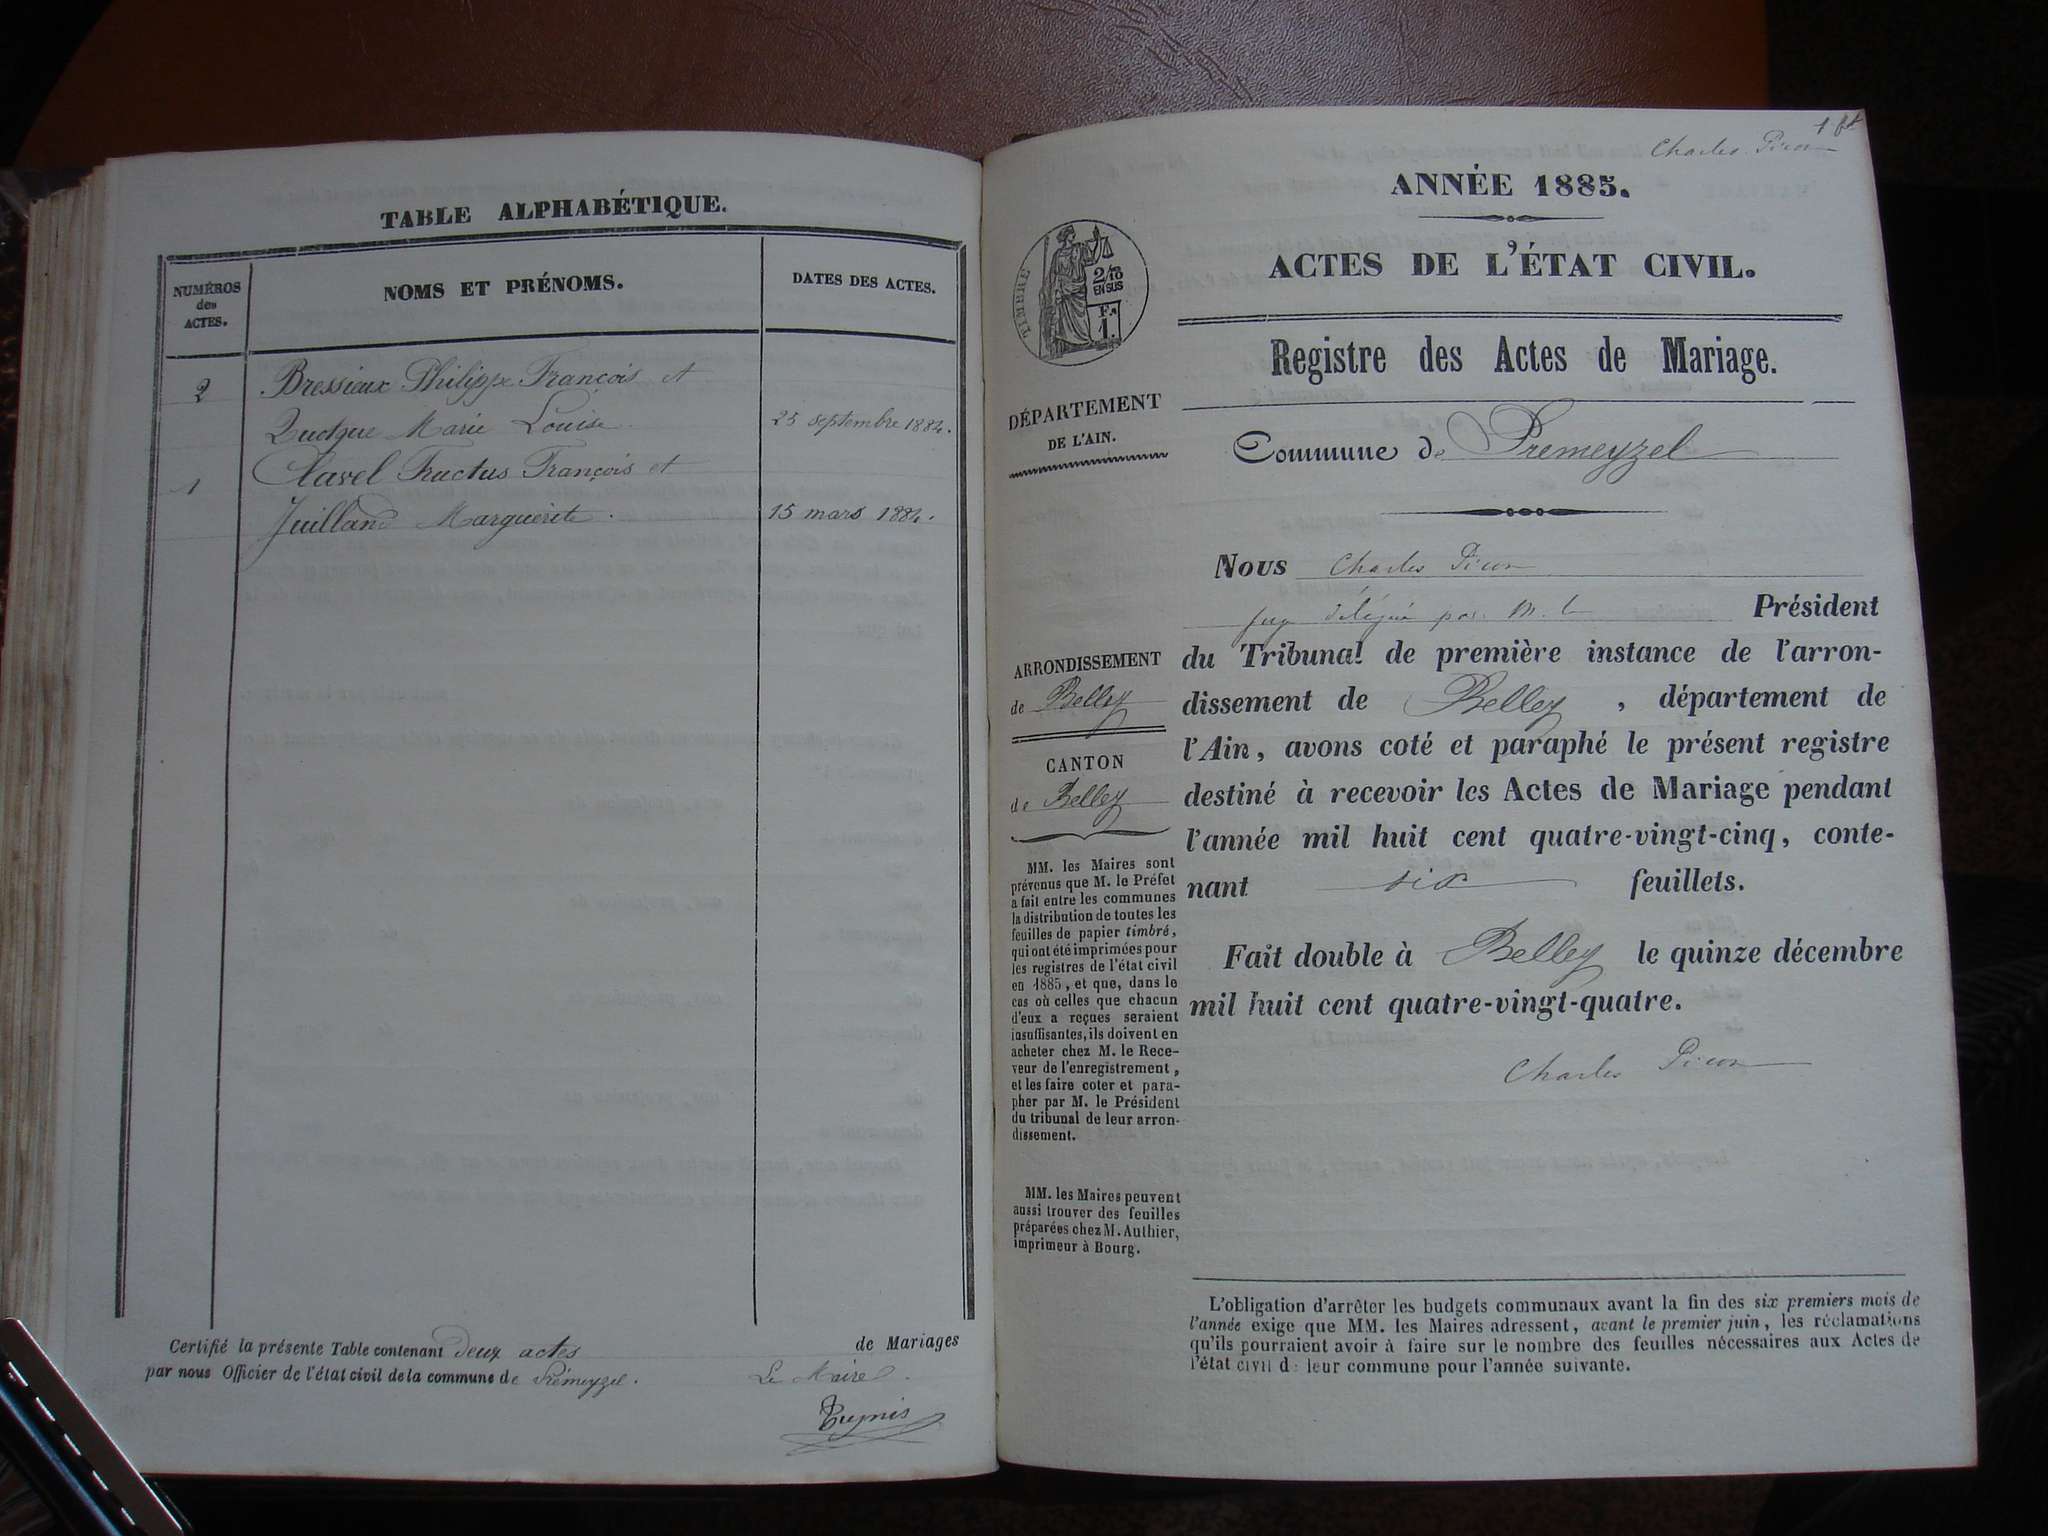 TABLE ALPHABÉTIQUE.
NUMÉROS
des
ACTES.
NOMS ET PRÉNOMS.
DATES DES ACTES.
2 Bressieux Philippe François et
Marie Louise 25 septembre 1884.
1 Clavel Fructus François et
Juilland Marguerite. 15 mars 1884.
Certifié la présente Table contenant deux actes de Mariages
par nous Officier de l'état civil de la commune de Prémeyzel.
Le Maire
Charles Picon
1 ft
ANNÉE 1885.
ACTES DE L'ÉTAT CIVIL.
TIMBRE
2/10
EN SUS
F.
1.
Registre des Actes de Mariage.
DÉPARTEMENT
DE L'AIN.
Commune de Premeyzel
Nous Charles Picon
juge délégué par M. le Président
du Tribunal de première instance de l'arron-
dissement de Belley, département de
l'Ain, avons coté et paraphé le présent registre
destiné à recevoir les Actes de Mariage pendant
l'année mil huit cent quatre-vingt-cinq, conte-
nant six feuillets.
Fait double à Belley le quinze décembre
mil huit cent quatre-vingt-quatre.
Charles Picon
ARRONDISSEMENT
de Belley
CANTON
de Belley
MM. les Maires sont
prévenus que M. le Préfet
a fait entre les communes
la distribution de toutes les
feuilles de papier timbré,
qui ont été imprimées pour
les registres de l'état civil
en 1885, et que, dans le
cas où celles que chacun
d'eux a reçues seraient
insuffisantes, ils doivent en
acheter chez M. le Rece-
veur de l'enregistrement,
et les faire coter et para-
pher par M. le Président
du tribunal de leur arron-
dissement.
MM. les Maires peuvent
aussi trouver des feuilles
préparées chez M. Authier,
imprimeur à Bourg.
L'obligation d'arrêter les budgets communaux avant la fin des six premiers mois de
l'année exige que MM. les Maires adressent, avant le premier juin, les réclamations
qu'ils pourraient avoir à faire sur le nombre des feuilles nécessaires aux Actes de
l'état civil de leur commune pour l'année suivante.